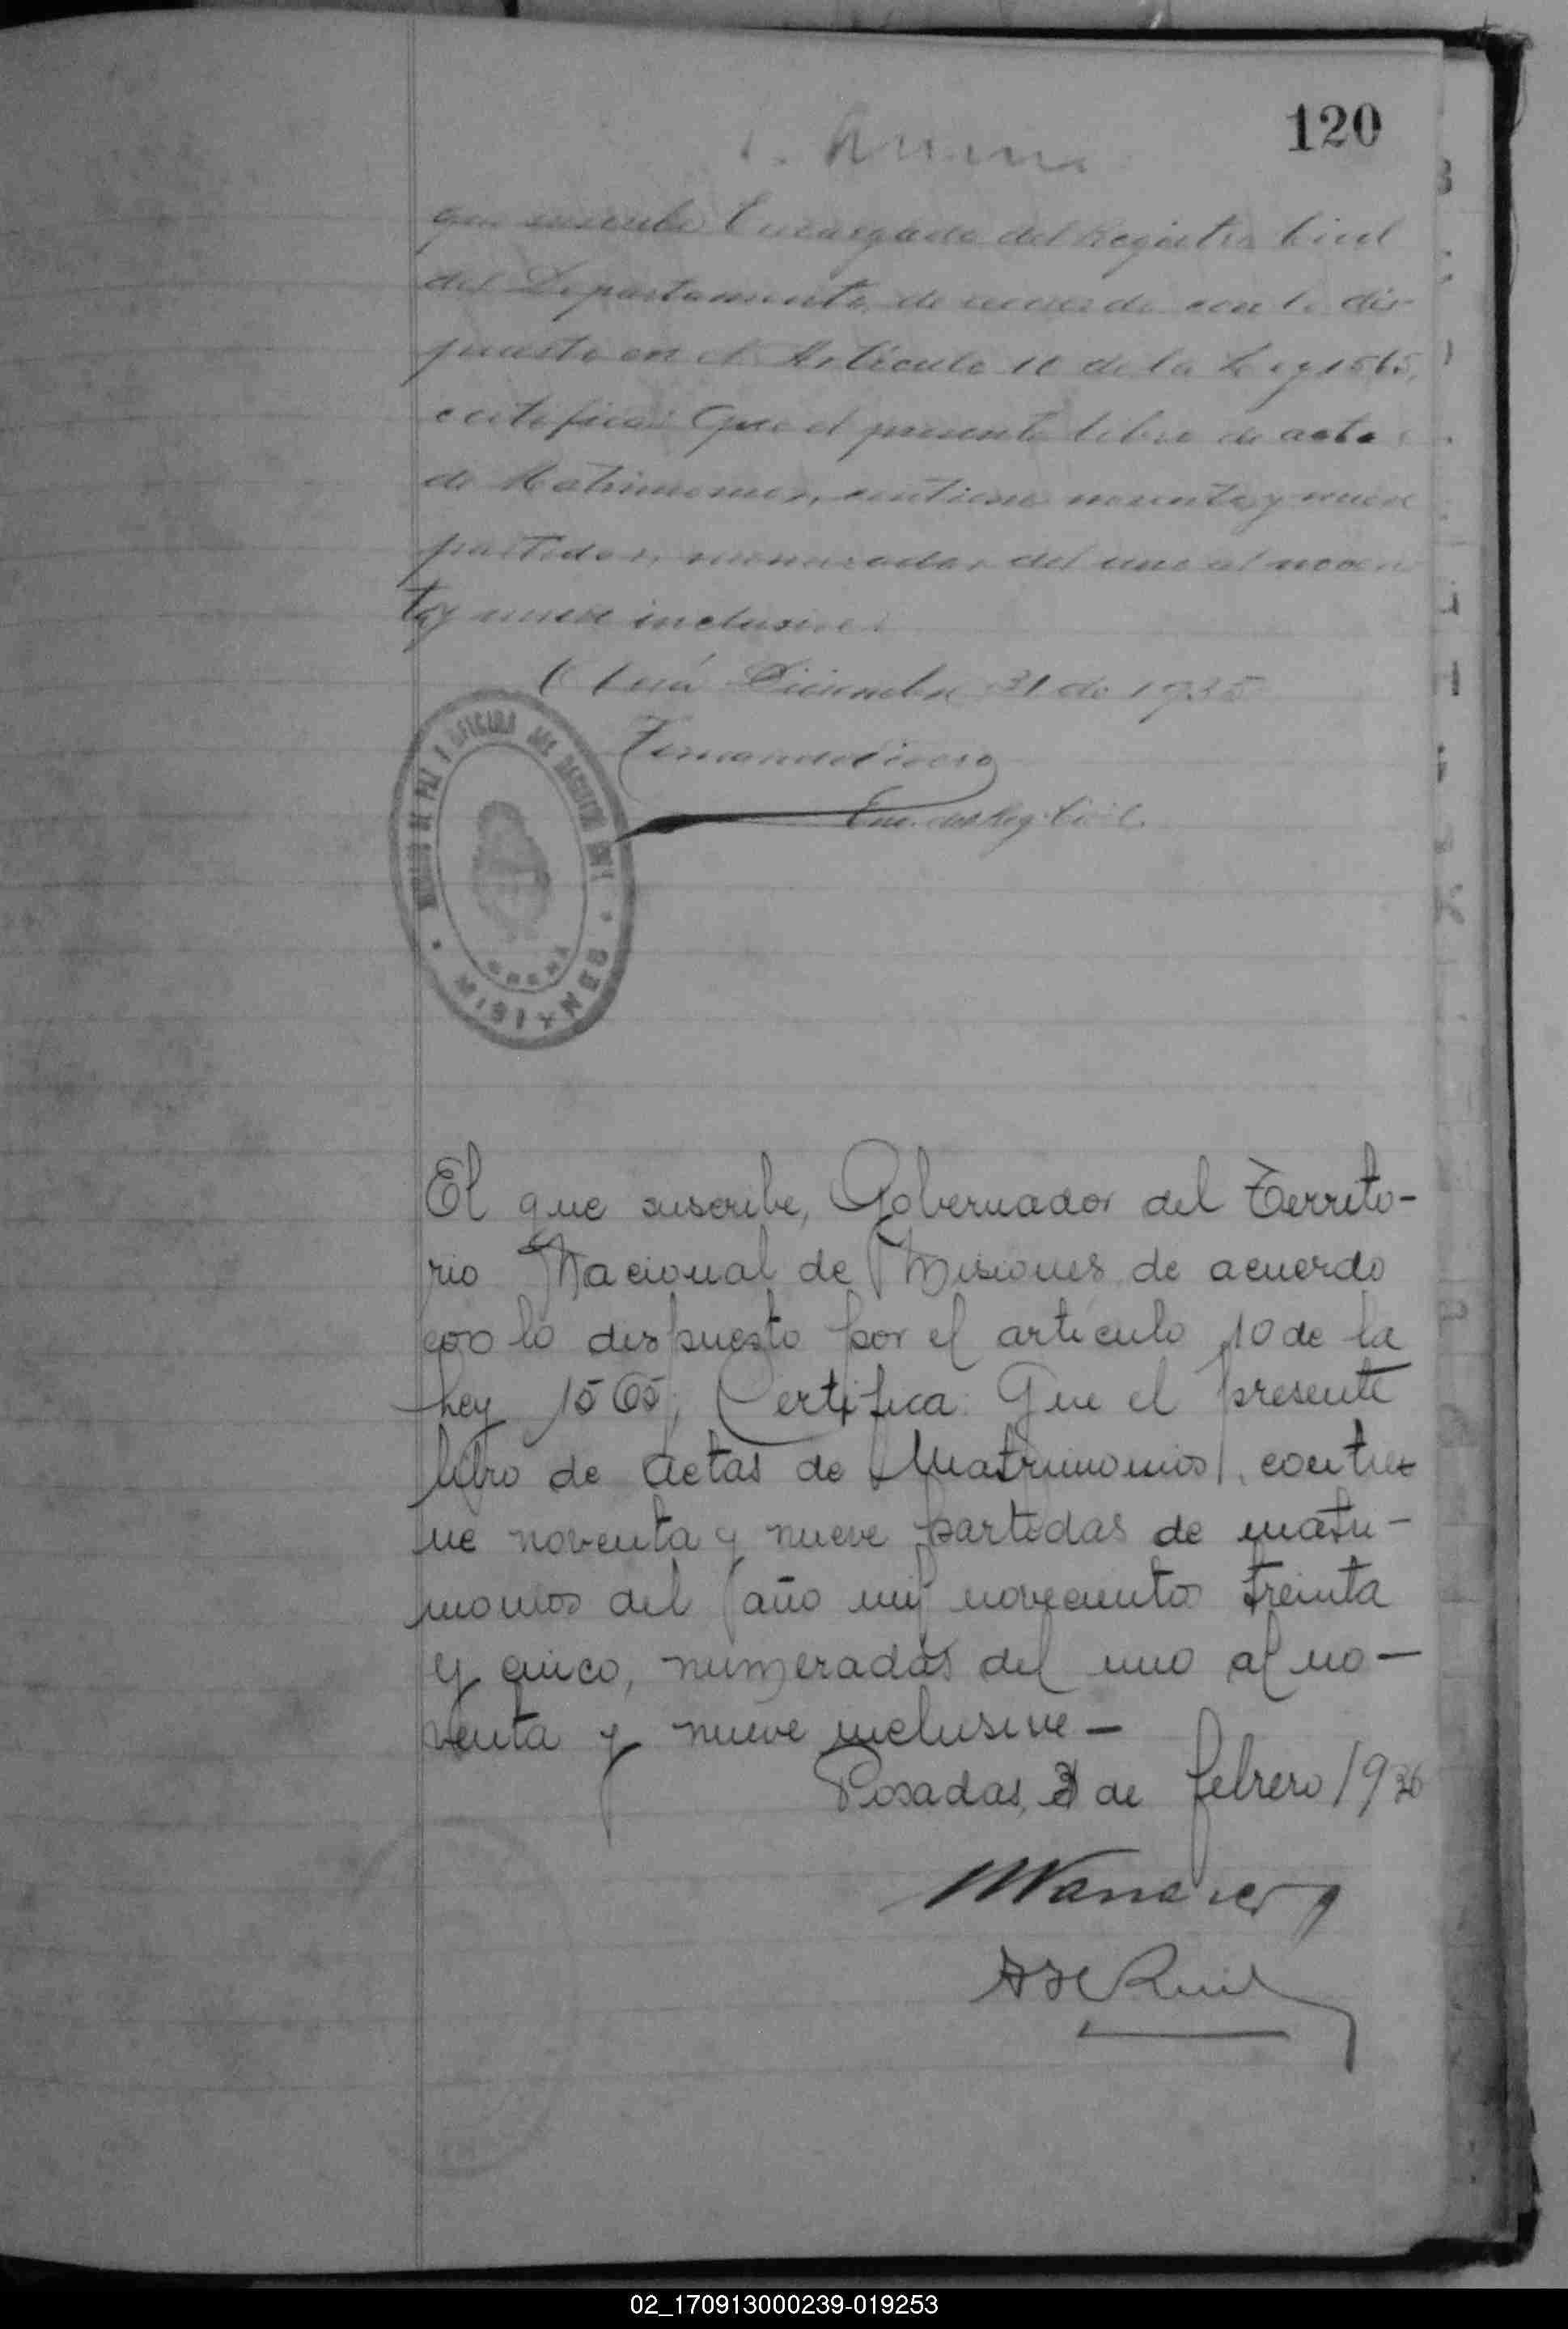 120
que suscribe Encargado del Registro Civil
del Departamento, de acuerdo con lo dis-
puesto en el Artículo 10 de la Ley 1565,
certifica: Que el presente libro de actas
de Matrimonios, contiene noventa y nueve
partidas, numeradas del uno al noven
ta y nueve inclusive.
Oberá Diciembre 31 de 1935
Enc. del Reg. Civil
JUZGADO DE PAZ Y OFICINA DEL REGISTRO CIVIL
OBERÁ
MISIONES
El que suscribe, Gobernador del Territo-
rio Nacional de Misiones de acuerdo
con lo dispuesto por el artículo 10 de la
Ley 1565; Certifica: Que el presente
libro de actas de Matrimonios, contie
ne noventa y nueve partidas de matri-
monios del año mil novecientos treinta
y cinco, numeradas del uno al no-
venta y nueve inclusive-
Posadas, de febrero 1936
02_170913000239-019253